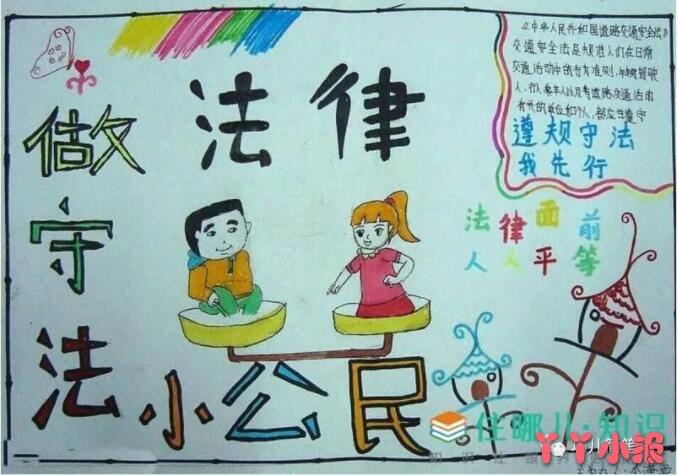 法律
做守法
小公民
《中华人民共和国道路交通安全法》
交通安全法是规范人们在日常
交通活动中的行为准则,
人、行人、乘车人以及与道路交通活动
有关的单位和个人,都应当遵守
遵规守法
我先行
法律面前
人人平等
住哪儿·知识
丫丫小报